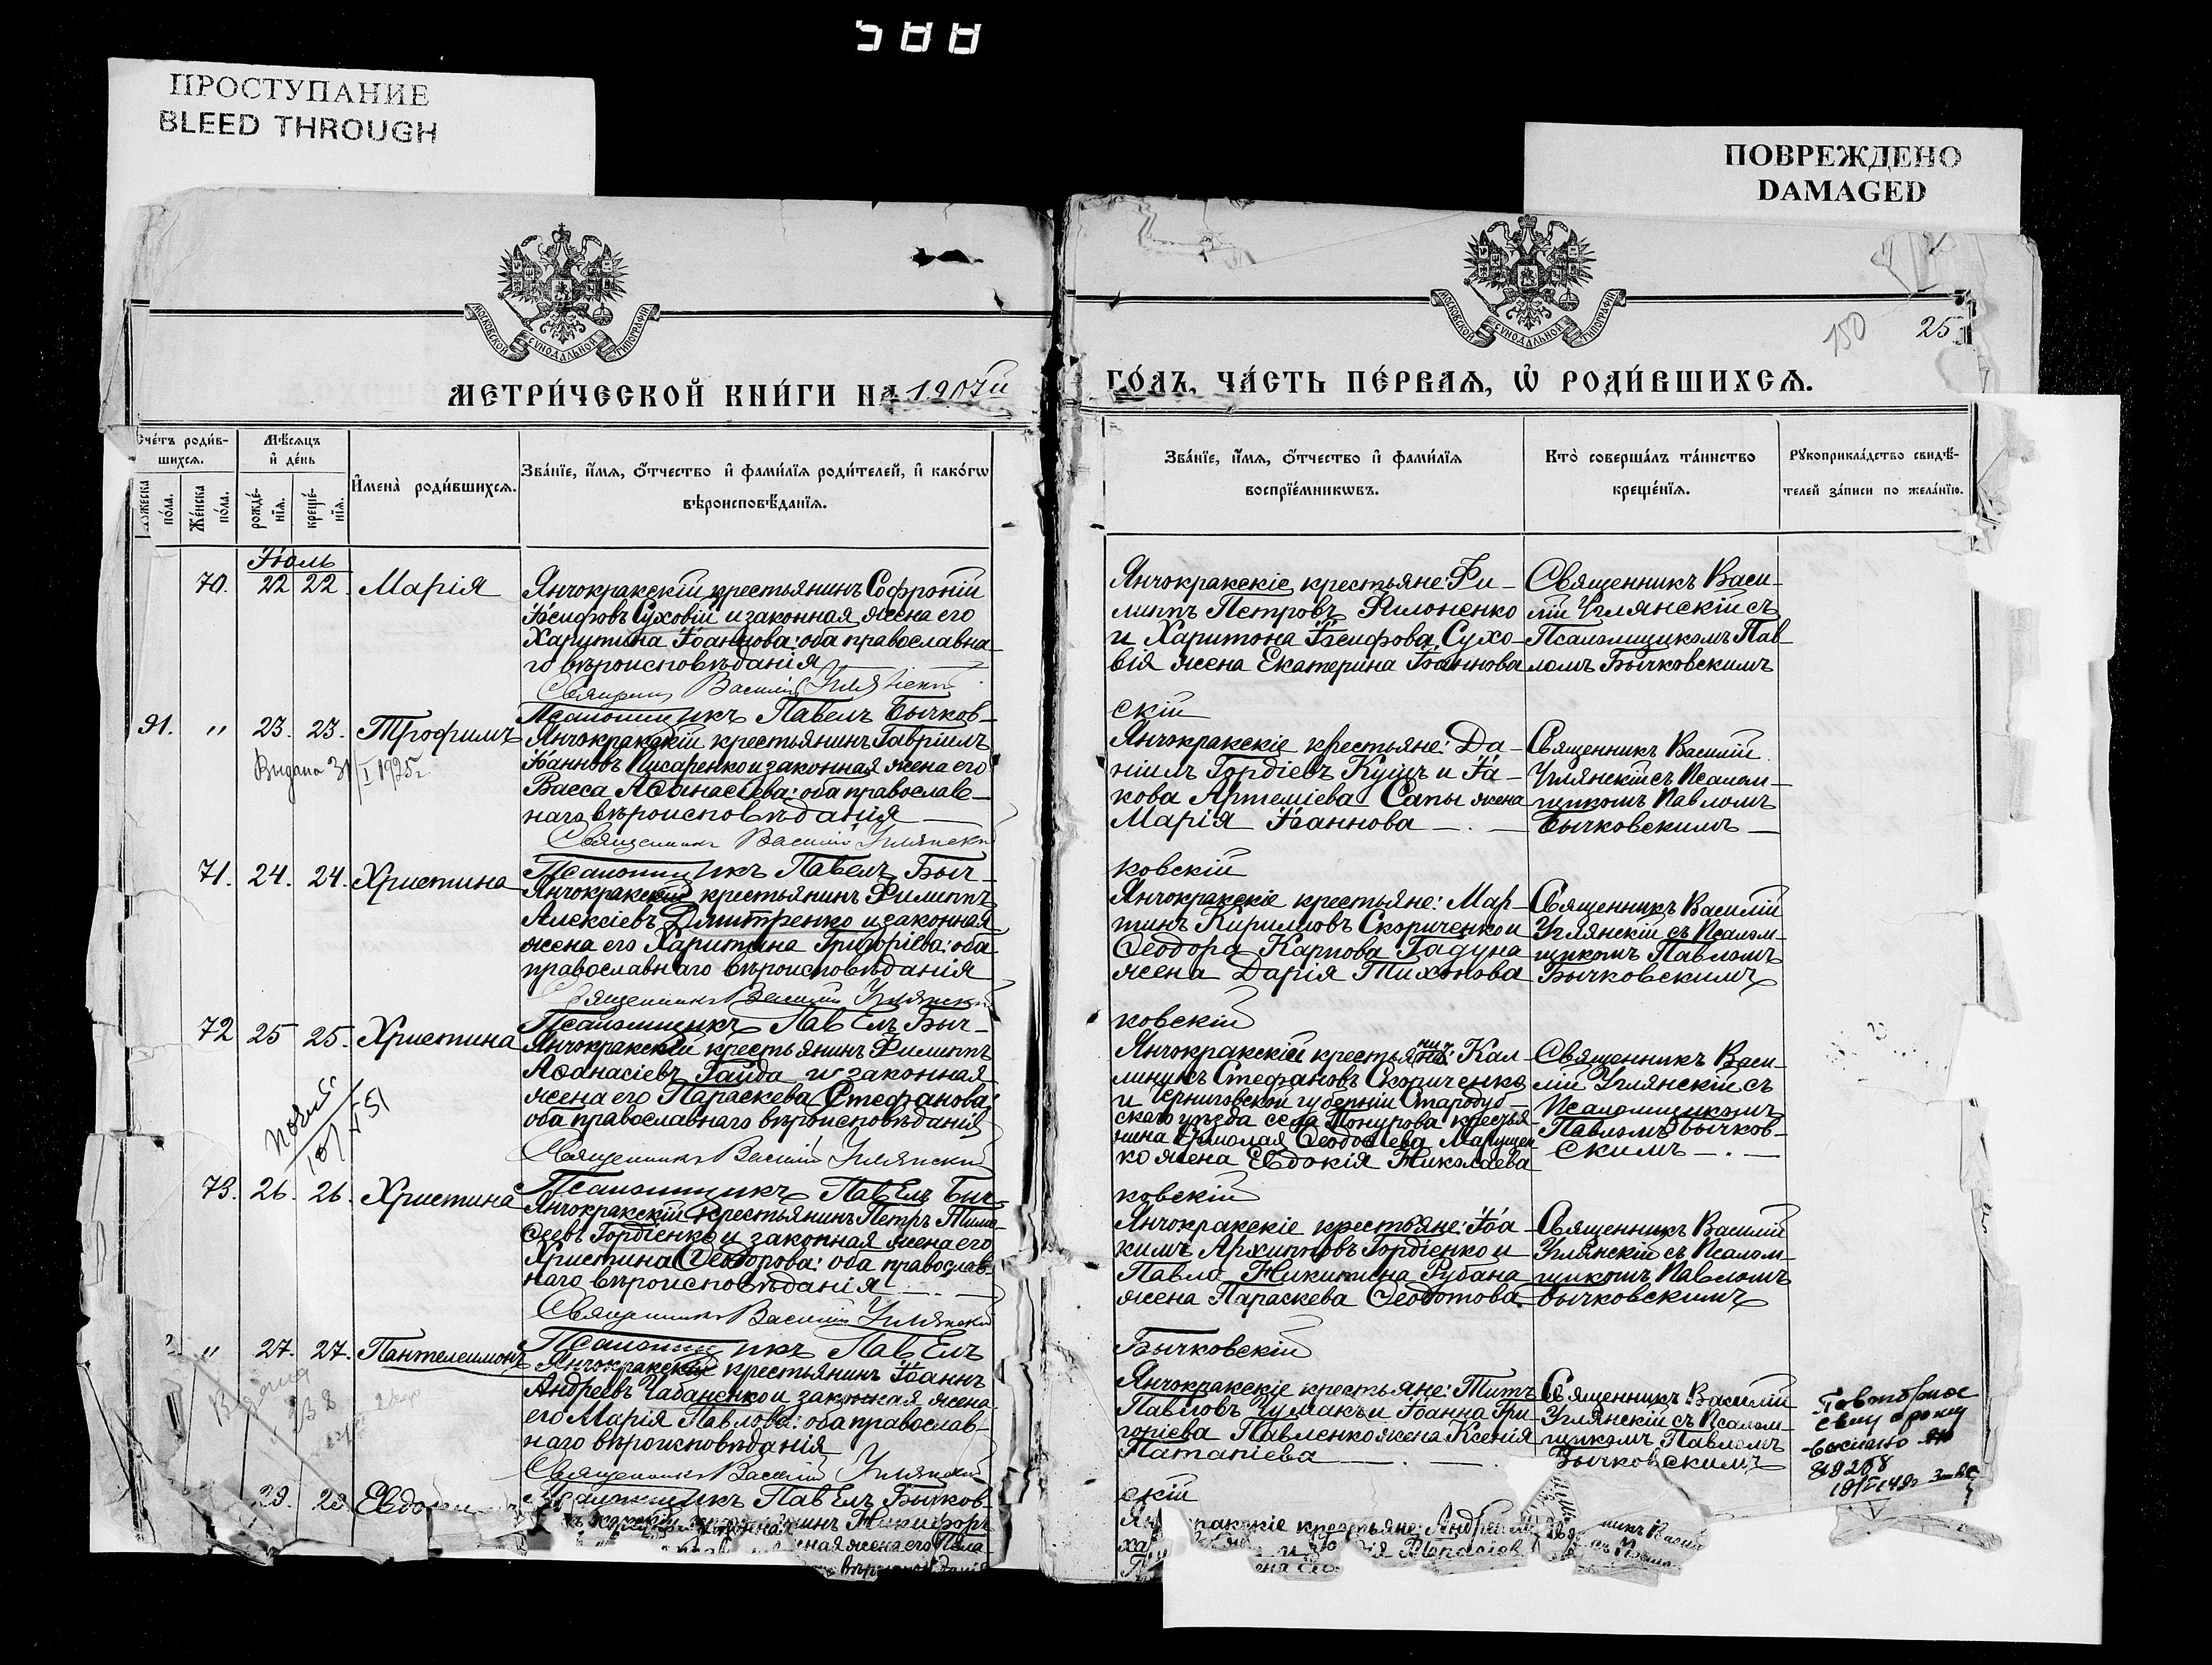 588
ПРОСТУПАНИЕ
BLEED THROUGH
ПОВРЕЖДЕНО
DAMAGED
МОСКОВСКОЙ СѴНОДАЛЬНОЙ ТИПОГРАФІИ
МОСКОВСКОЙ СѴНОДАЛЬНОЙ ТИПОГРАФІИ
150
25
МЕТРИ́ЧЕСКОЙ КНИ́ГИ НА 1907й
ГО́ДЪ, ЧА́СТЬ ПЕ́РВАѦ, Ѡ҆ РОДИ́ВШИХСѦ.
Сче́тъ роди́в-
шихсѧ.
Мѣ́сѧцъ
и҆ де́нь
Мꙋ́жеска по́ла.
Же́нска по́ла.
рожде́-нїѧ.
креще́-нїѧ.
И҆мена̀ роди́вшихсѧ.
Зва́нїе, и҆́мѧ, ѻ҆́тчество и҆ фами́лїѧ роди́телей, и҆ како́гѡ
вѣроисповѣ́данїѧ.
Зва́нїе, и҆́мѧ, ѻ҆́тчество и҆ фами́лїѧ
воспрїе́мникѡвъ.
Кто̀ соверша́лъ та́инство
креще́нїѧ.
Рꙋкоприкла́дство свидѣ́-
телей за́писи по жела́нїю.
Іюль
70. 22 22 Марія
Янчокракскій крестьянинъ Софроній
Іосифовъ Суховій и законная жена его
Харитина Іоаннова: оба православна-
го вѣроисповѣданія
Священникъ Василій Углянскій
Псаломщикъ Павелъ Бычков-
скій
Янчокракскіе крестьяне: Фи-
липпъ Петровъ Филоненко
и Харитона Іосифова Сухо-
вія жена Екатерина Іоаннова
Священникъ Васи-
лій Углянскій съ
Псаломщикомъ Пав-
ломъ Бычковскимъ
91. " 23. 23. Трофимъ
Выдана 31/I 1925г.
Янчокракскій крестьянинъ Гавріилъ
Іоанновъ Писаренко и законная жена его
Васса Аѳанасіева: оба православ-
наго вѣроисповѣданія
Священникъ Василій Углянскій
Псаломщикъ Павелъ Быч-
ковскій
Янчокракскіе крестьяне: Да-
ніилъ Гордіевъ Куцъ и Іа-
кова Артеміева Сапы жена
Марія Іоаннова
Священникъ Василій
Углянскій съ Псалом-
щикомъ Павломъ
Бычковскимъ
71. 24. 24. Христина
Янчокракскій крестьянинъ Филиппъ
Алексіевъ Дмитренко и законная
жена его Харитина Григоріева: оба
православнаго вѣроисповѣданія
Священникъ Василій Углянскій
Псаломщикъ Павелъ Быч-
ковскій
Янчокракскіе крестьяне: Мар-
тинъ Кирилловъ Скориченко и
Ѳеодора Карпова Гадуна
жена Дарія Тихонова
Священникъ Василій
Углянскій съ Псалом-
щикомъ Павломъ
Бычковскимъ
72 25 25. Христина
Янчокракскій крестьянинъ Филиппъ
Аѳанасіевъ Гайда и законная
жена его Параскева Стефанова:
оба православнаго вѣроисповѣданія
Священникъ Василій Углянскій
Псаломщикъ Павелъ Быч-
ковскій
Янчокракскій крестьянинъ: Кал-
линикъ Стефановъ Скориченко
и Черниговской губерніи Стародуб-
скаго уѣзда села Понурова крестья-
нина Ермолая Ѳеодосіева Марущен-
ко жена Евдокія Николаева
Священникъ Васи-
лій Углянскій съ
Псаломщикомъ
Павломъ Бычков-
скимъ
73. 26. 26. Христина
Янчокракскій крестьянинъ Петръ Тимо-
ѳеевъ Гордіенко и законная жена его
Христина Ѳеодорова: оба православ-
наго вѣроисповѣданія
Священникъ Василій Углянскій
Псаломщикъ Павелъ
Бычковскій
Янчокракскіе крестьяне: Іоа-
кимъ Архипповъ Гордіенко и
Павла Никитина Рубана
жена Параскева Ѳеодотова.
Священникъ Василій
Углянскій съ Псалом-
щикомъ Павломъ
Бычковскимъ
" 27. 27. Пантелеимонъ
Янчокракскій крестьянинъ Іоаннъ
Андреевъ Чабаненко и законная жена
его Марія Павлова: оба православ-
наго вѣроисповѣданія
Священникъ Василій Углянскій
Псаломщикъ Павелъ Бычков-
скій
Янчокракскіе крестьяне: Титъ
Павловъ Чумакъ и Іоанна Гри-
горіева Павленко жена Ксенія
Патапіева
Священникъ Василій
Углянскій съ Псалом-
щикомъ Павломъ
Бычковскимъ
29. 29. Евдо
Никифоръ
жена его Пела-
крестьяне: Андрей